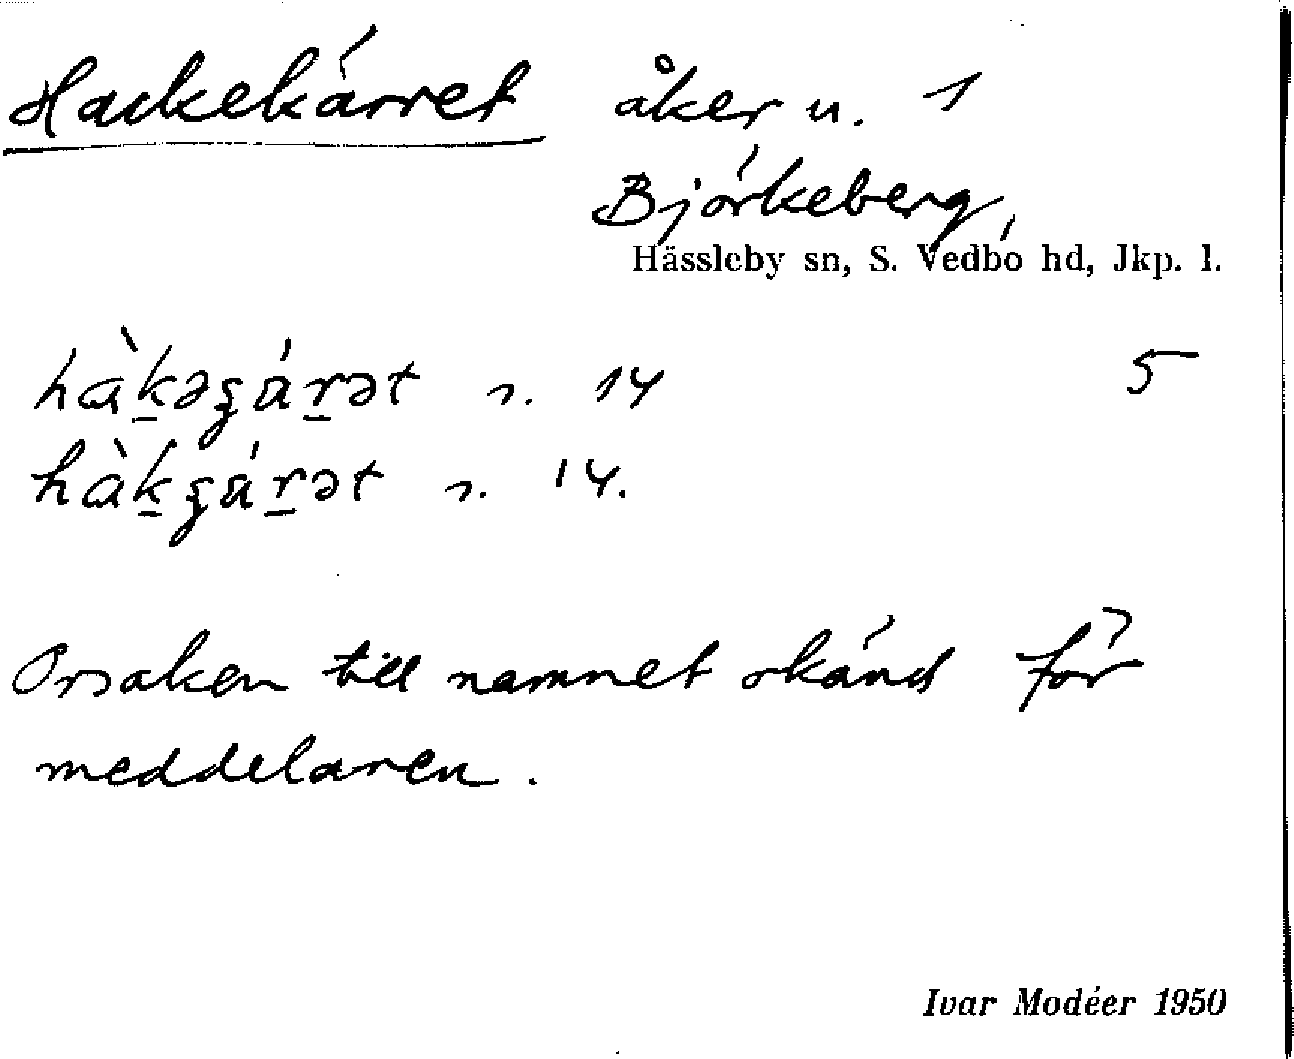 Hackekärret åker u. 1
Björkeberg,
Hässleby sn, S. Vedbo hd, Jkp. l.
hàk̲əʒár̲ət n. 14 5
hàk̲ʒár̲ət n. 14.
Orsaken till namnet okänd för
meddelaren.
Ivar Modéer 1950